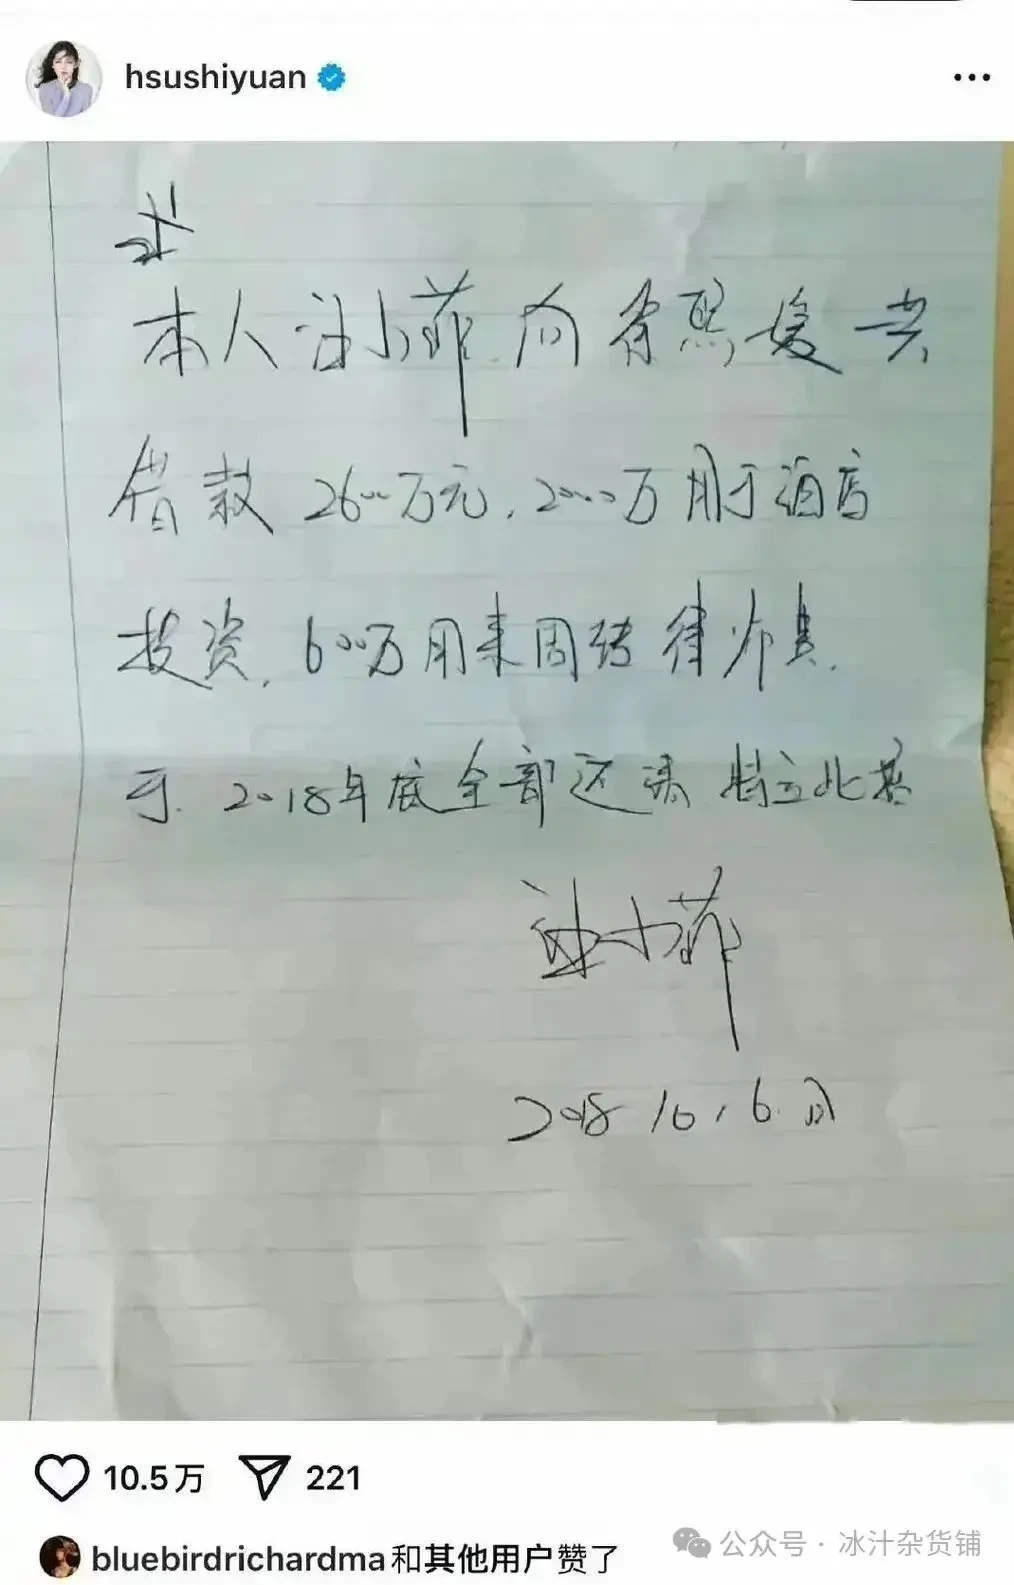 hsushiyuan
本人汪小菲向徐熙媛共
借款2600万元，2000万用于酒店
投资，600万用来周转律师其
于2018年底全部还清 特立此据
汪小菲
2018 10，6日
10.5万 221
bluebirdrichardma和其他用户赞了
公众号·冰汁杂货铺